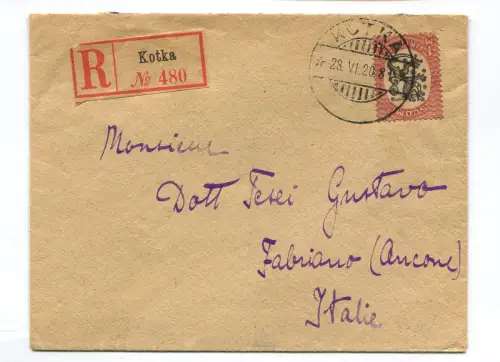 R
Kotka
№ 480
KOTKA
28. VI. 20. 8
Monsieur
Dott Tesei Gustavo
Fabriano (Ancone)
Italie